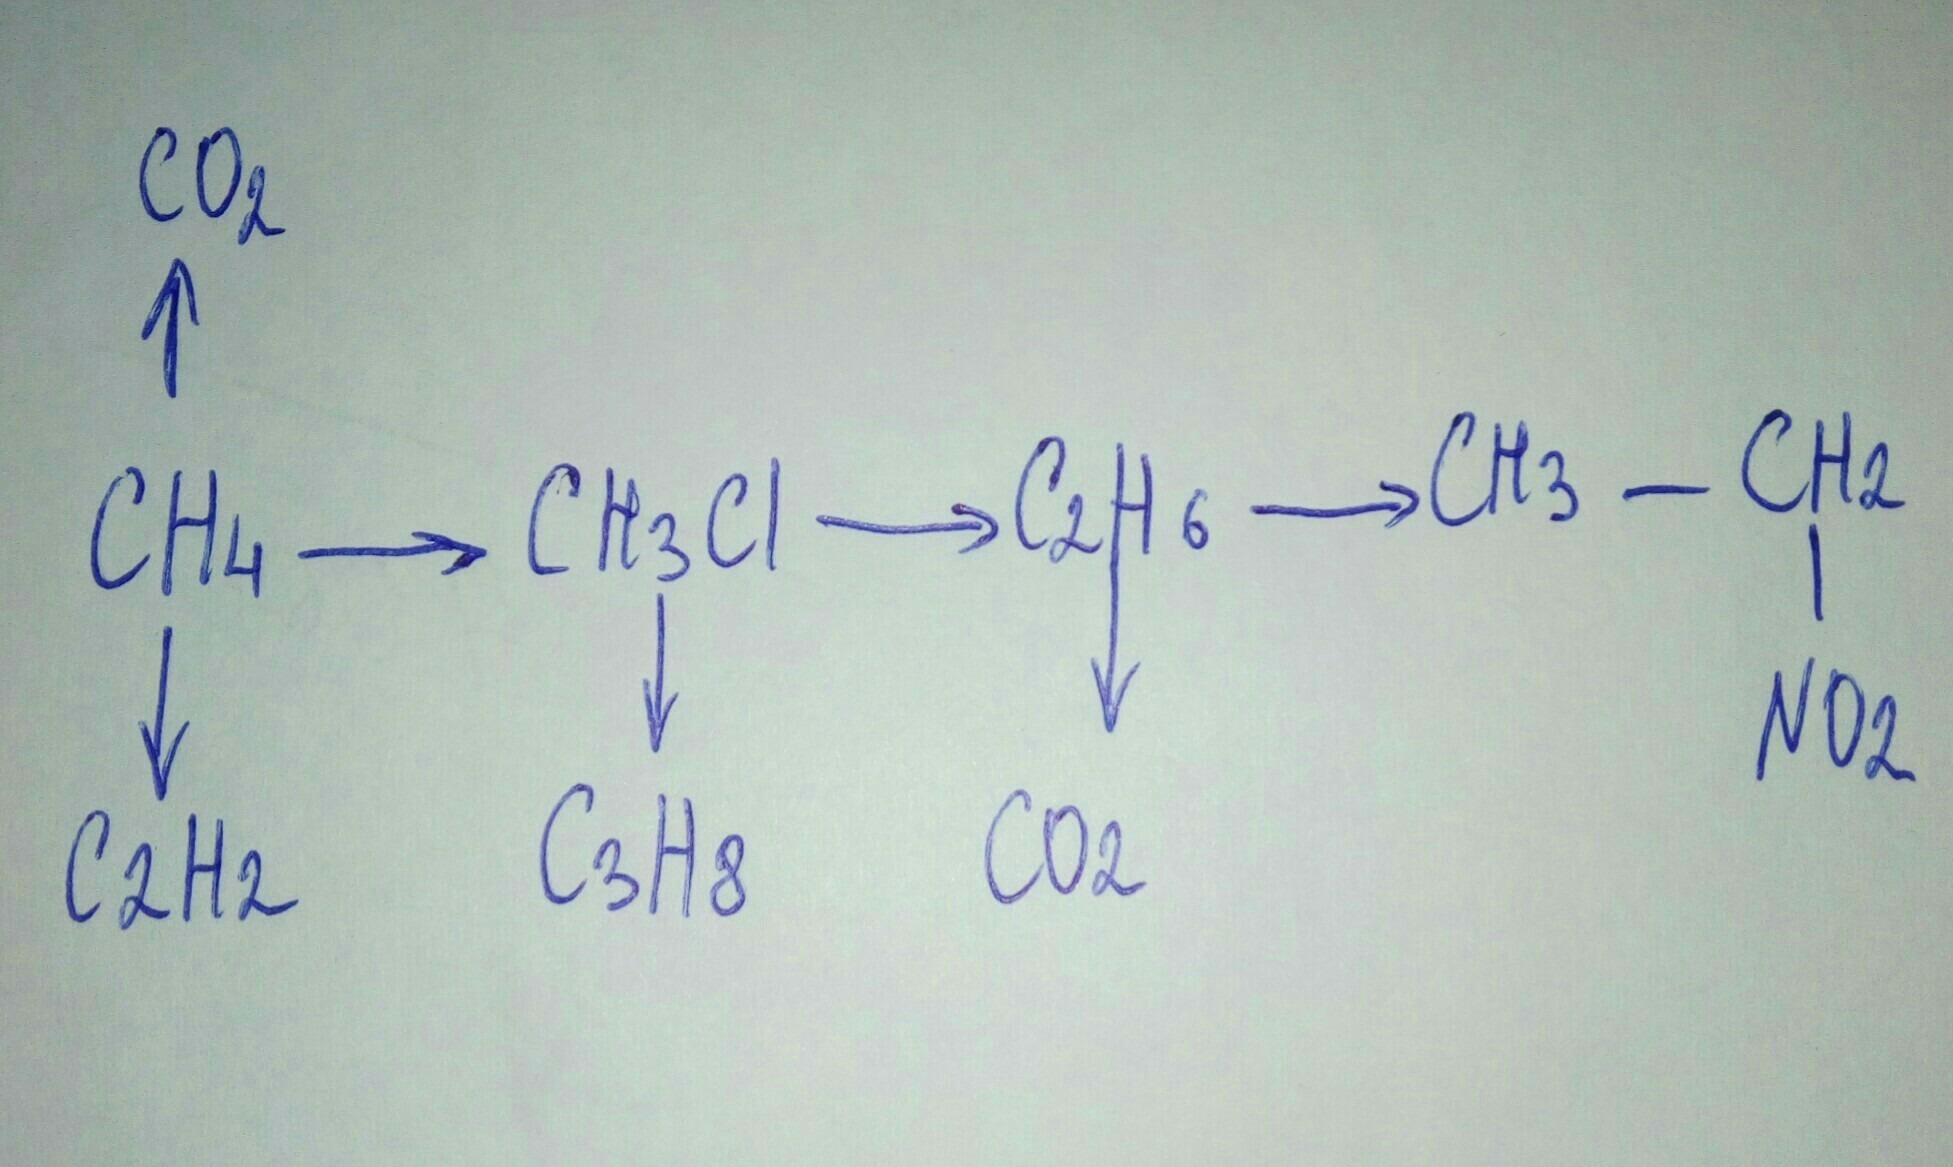 CO2
↑
CH4 → CH3Cl → C2H6 → CH3 - CH2
↓ ↓ ↓ |
NO2
C2H2 C3H8 CO2